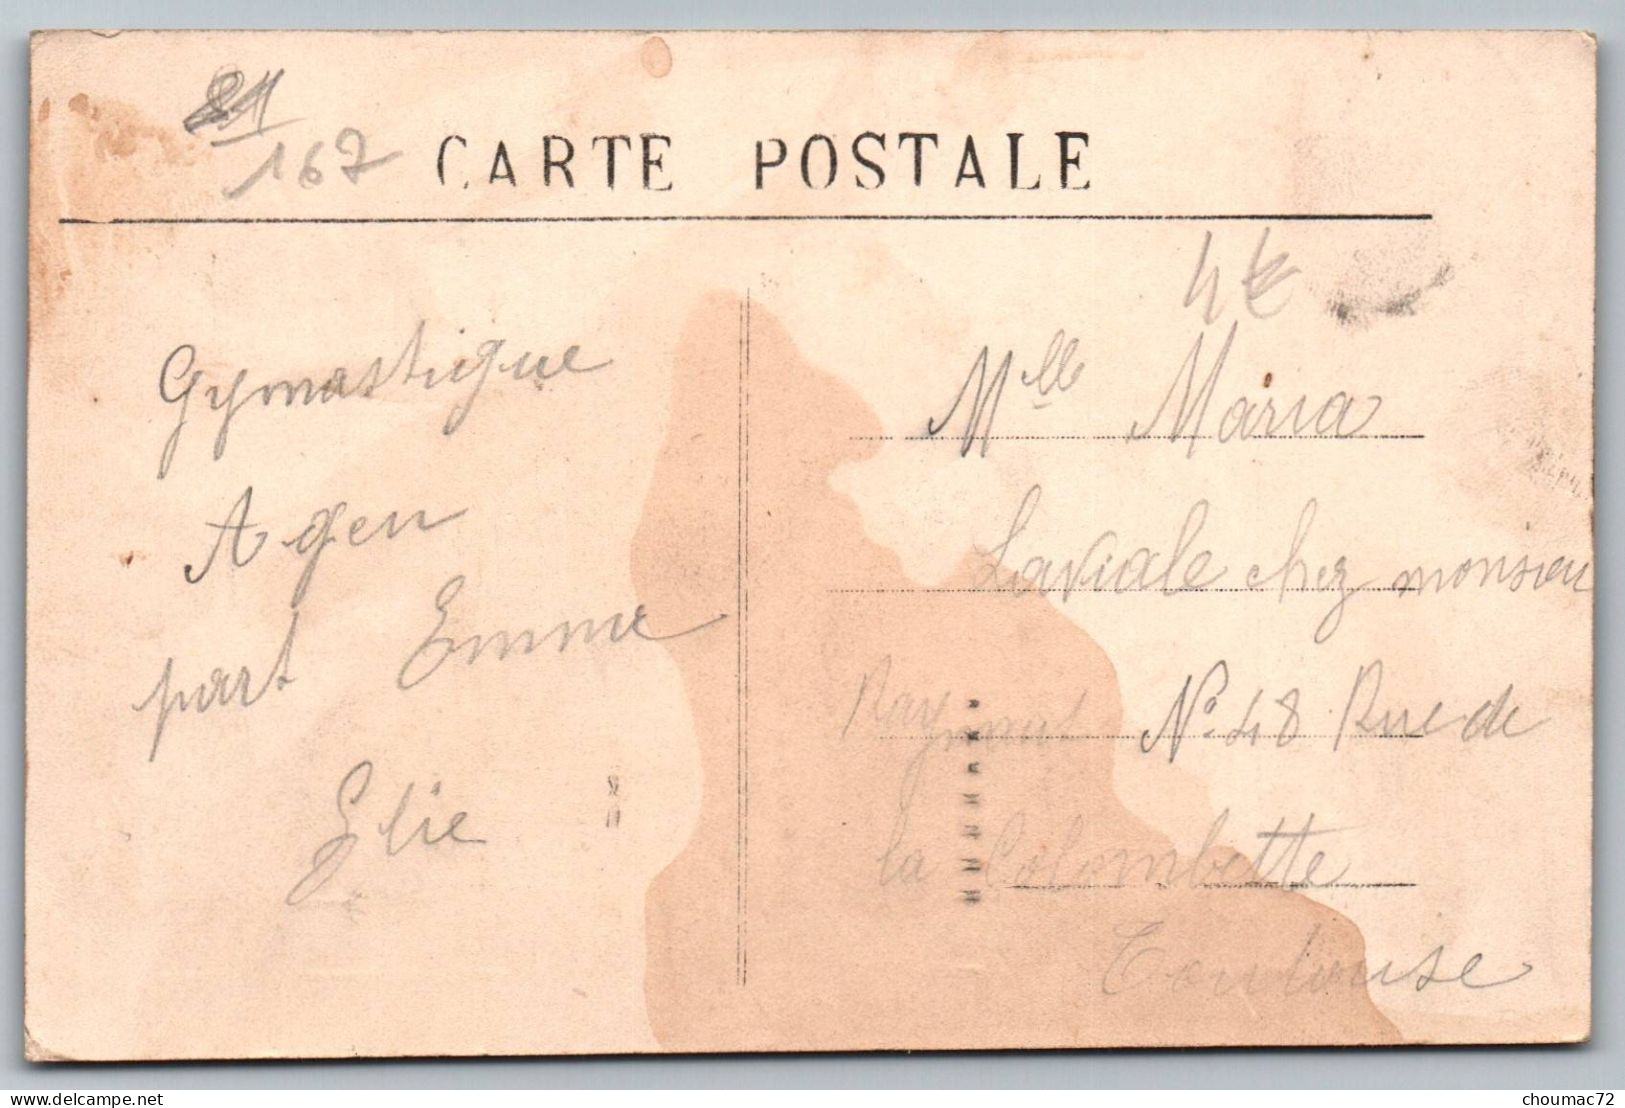 167
CARTE POSTALE
4€
Gymastique
Agen
part Emma
Elie
Mlle Maria
Laviale chez monsieu
Raymond N° 48 Rue de
la Colombette
Toulouse
choumac72